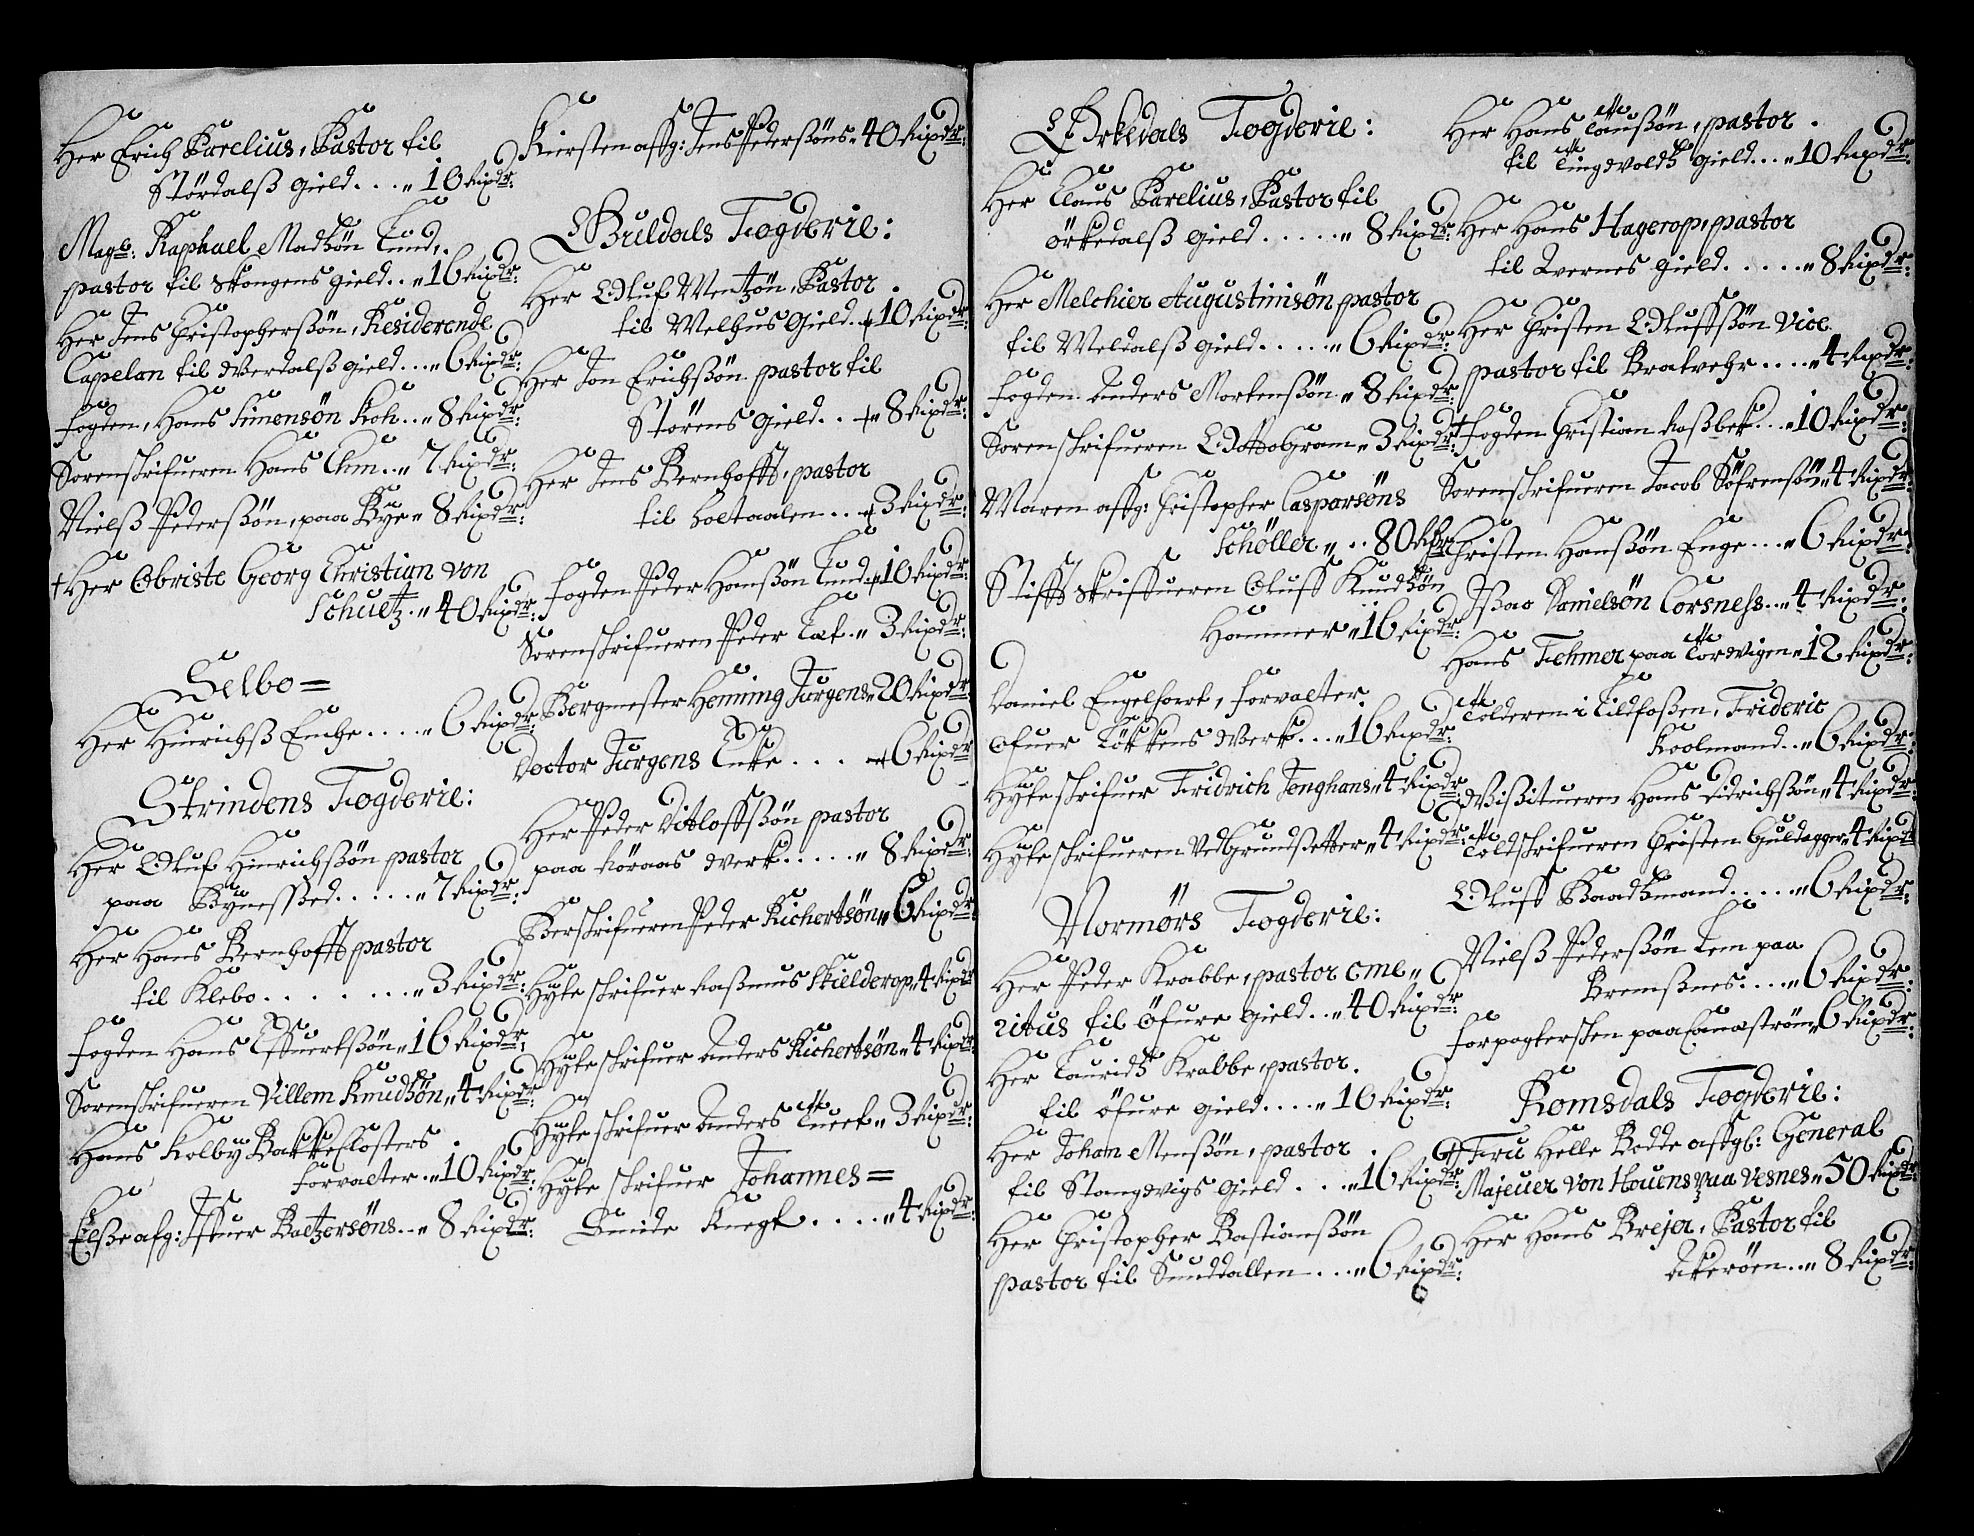 Her Erich Parelius, Pastor til
Stördalß gield . . . „ 10 Rixdr:
Magr: Raphael Madßön Lund,
pastor til Skongens gield . . „ 16 Rixdr:
Her Jens Christopherßön, Residerende
Capelan til Werdalß gield . . . „ 6 Rixdr:
Fogden, Hans Simensön Koh . . „ 8 Rixdr:
Sorenskrifueren Hans . . „ 7 Rixdr:
Nielß Pederßön, paa Bye „ 8 Rixdr:
† Her Obriste Georg Christian von
Schultz . „ 40 Rixdr:
Selbo =
Her Hinrichß Enche . . . . „ 6 Rixdr:
Strindens Fogderie:
Her Oluf Hinrichßön pastor
paa Bÿneßßed . . . . . „ 7 Rixdr:
Her Hans Bernhofft pastor
til Klebo . . . . . . . „ 3 Rixdr:
Fogden Hans Effuertßön „ 16 Rixdr:
Sorenskrifueren Villem Knudßön „ 4 Rixdr:
Hans Kolbÿ Bakke Closters
forvalter . „ 10 Rixdr:
Elße afg: Iffuer Baltzersöns . . „ 8 Rixdr:
Kiersten affg: Jens Pederßöns „ 40 Rixdr:
Guldals Fogderie:
Her Oluf Mentzön, Pastor
til Melhus Gield . † 10 Rixdr:
Her Jon Erichßön pastor til
Störens gield . . † „ 8 Rixdr:
Her Jens Bernhofft, pastor
til holtaalen . . † 3 Rixdr:
Fogden Peder Hanßön Lund † 10 Rixdr:
Sorenskrifueren Peder „ 3 Rixdr:
Bergmester Henning Jürgens „ 20 Rixdr:
Doctor Jürgens Enke . . . † 6 Rixdr
Her Peder Ditloffßön pastor
paa Röraas werk . . . . . „ 8 Rixdr:
Berskrifueren Peder Richertsön „ 6 Rixdr
Hyteskrifuer Raßmus Skielderop „ 4 Rixdr
Hyteskrifuer Anders Richertsön „ 4 Rixdr:
Hyteskrifuer Anders „ 3 Rixdr:
Hyte skrifuer Johannes =
Smide Knegt . . . . „ 4 Rixdr:
Orkedals Fogderie:
Her Claus Parelius, Pastor til
örkedalß gield . . . . . „ 8 Rixdr:
Her Melchier Augustinisön pastor
til Meldalß gield . . . . . „ 6 Rixdr:
Fogden Anders Mortenßön „ 8 Rixdr:
Sorenskrifueren Otto Gram „ 3 Rixdr:
Maren affg: Christopher Casparsöns
Schöller „ . . 80 Rdr
Stifftskriffueren Oluff Knudßön
Hammer „ 16 Rixdr:
Daniel Engelhart, forvalter
ofuer Lökkens Werk . . . „ 16 Rixdr:
Hyteskrifuer Fridrich Jonghans „ 4 Rixdr:
Hyteskrifueren ved Grundßetter „ 4 Rixdr:
Normørs Fogderie:
Her Peder Krabbe, pastor eme „
ritus til öfure gield . . „ 40 Rixdr:
Her Lauridß Krabbe, pastor
til öfure gield . . . . „ 10 Rixdr:
Her Johan Menßön, pastor
til Stangvigs gield . . . „ 16 Rixdr:
Her Christopher Bastianßön
pastor til Sunddallen . . . „ 6 Rixdr:
Her Hans Clausßön, pastor .
til Tingvoldß gield . . . „ 10 Rixdr:
Her Hans Hagerop, pastor
til Qvernes gield . . . . . „ 8 Rixdr:
Her Christen Oluffßön Vice
pastor til Bratvehr . . . . „ 4 Rixdr:
† Fogden Christian Raßbek . . . „ 10 Rixdr:
Sorenskrifueren Jacob Söfrensön „ 4 Rixdr:
Christen Hanßön Enge . . . „ 6 Rixdr:
Ißac Danielsön Corsness . . . „ 4 Rixdr:
Hans Fehmer paa Torvigen „ 12 Rixdr:
Tolderen i Lillfoßen, Frideric
Koolmand . . „ 6 Rixdr:
Wißitueren Hans Didrichßön „ 4 Rixdr:
Toldskrifueren Christen Guldagger „ 4 Rixdr
Oluff Baadßmand . . . . . „ 6 Rixdr:
Nielß Pederßön Lem paa
Bremßnes . . . . „ 6 Rixdr:
forpagtersken paa „ 6 Rixdr:
Romsdals Fogderie:
† Fru Helle Rodde affgl: General
Majeuer von Houens paa Vesnes „ 50 Rixdr:
Her Hans Brejer, Pastor til
Akerøen . . „ 8 Rixdr: